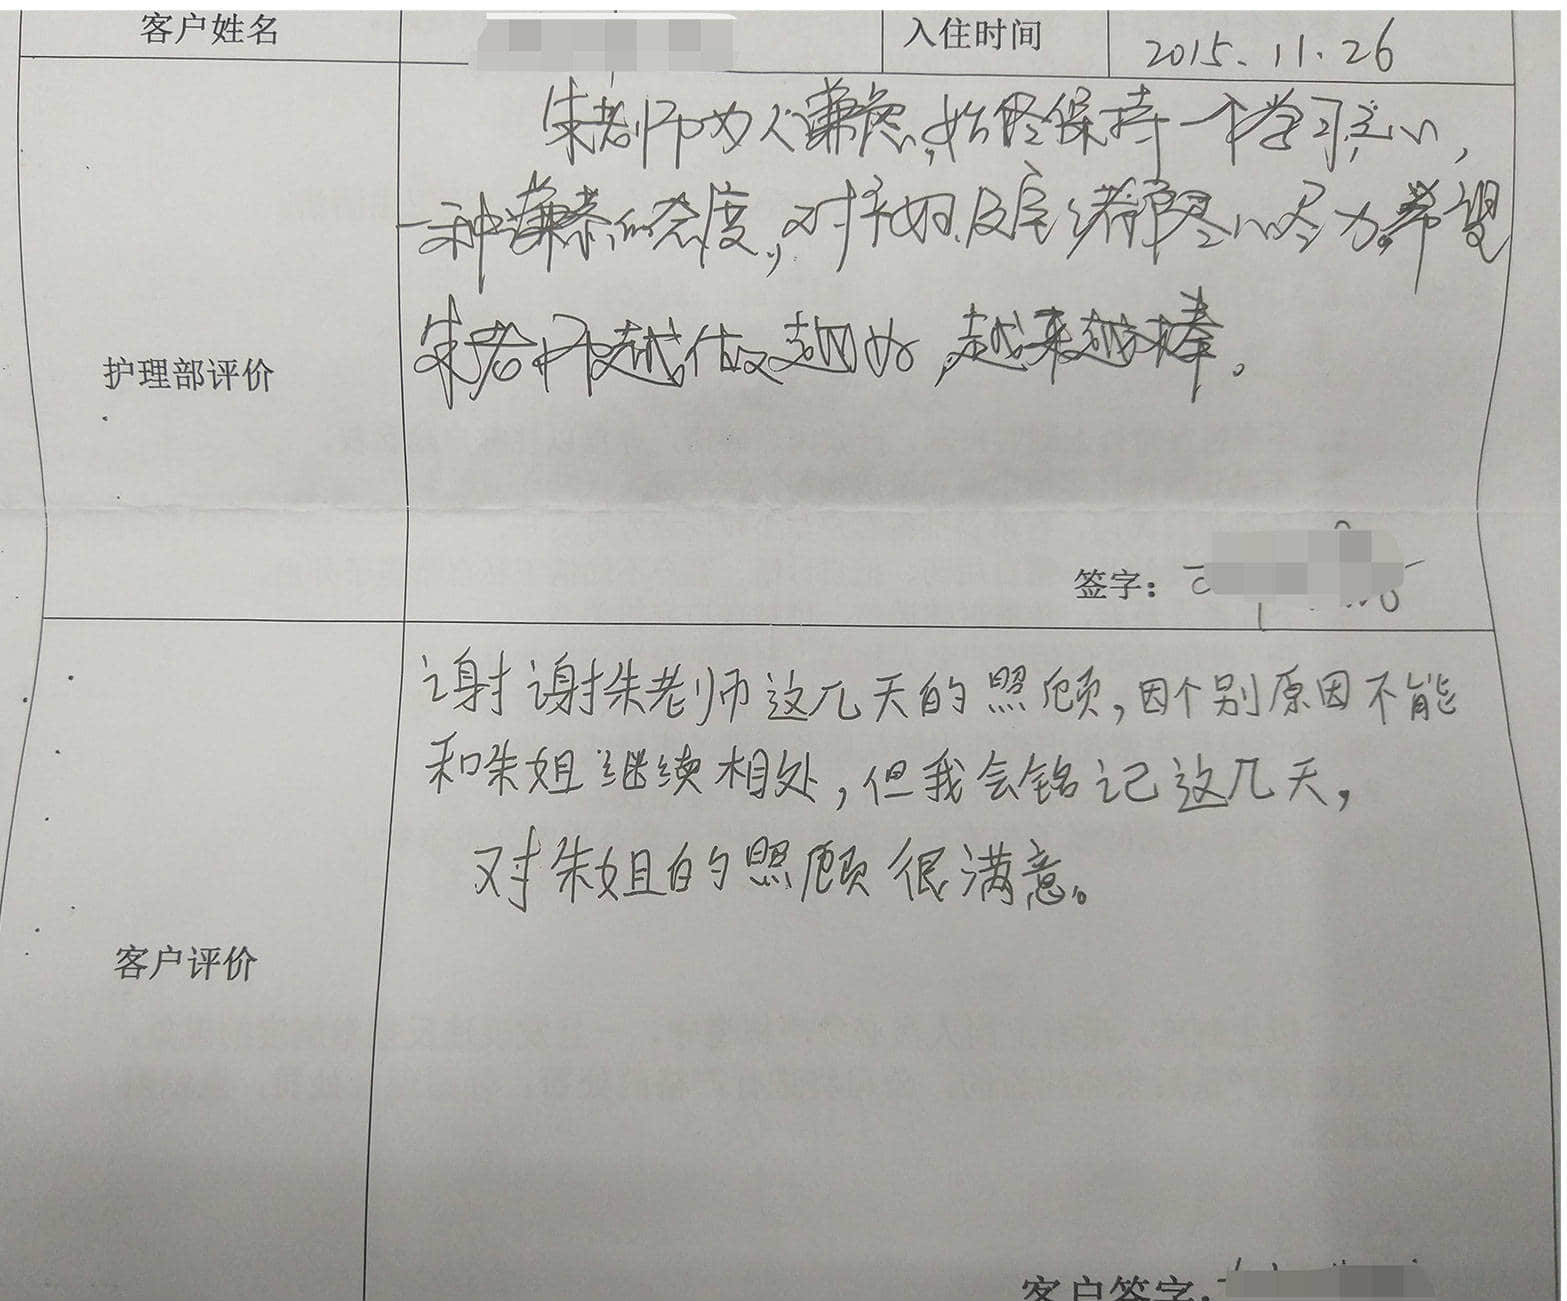 客户姓名 入住时间 2015.11.26
朱老师为人谦逊,始终保持一个学习之心,
一种谦恭的态度,对产妇及宝宝都尽心尽力。希望
朱老师越做越好,越来越棒。
护理部评价
签字:
谢谢朱老师这几天的照顾,因个别原因不能
和朱姐继续相处,但我会铭记这几天,
对朱姐的照顾很满意。
客户评价
客户签字: